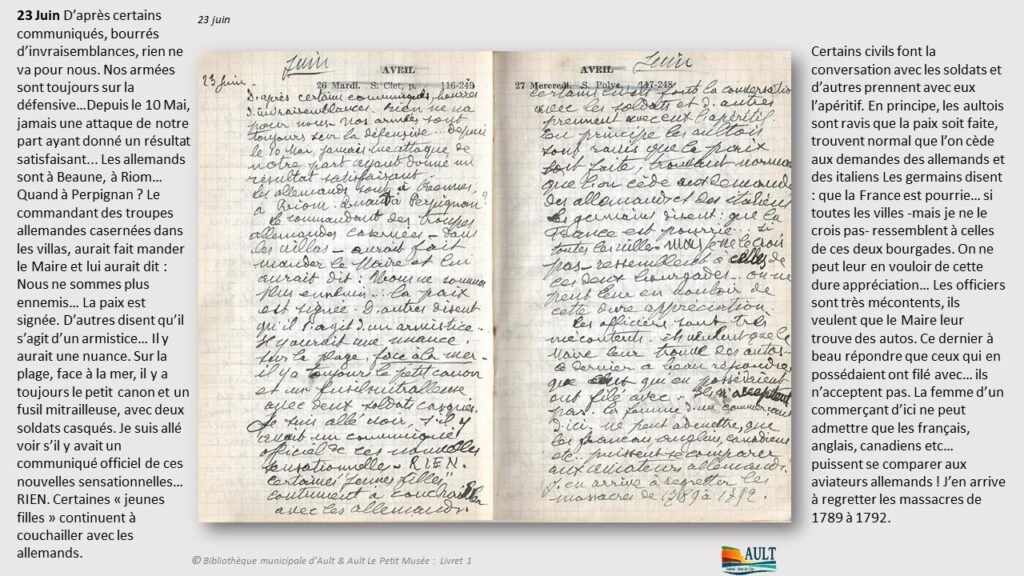 23 Juin D’après certains
communiqués, bourrés
d’invraisemblances, rien ne
va pour nous. Nos armées
sont toujours sur la
défensive…Depuis le 10 Mai,
jamais une attaque de notre
part ayant donné un résultat
satisfaisant… Les allemands
sont à Beaune, à Riom…
Quand à Perpignan ? Le
commandant des troupes
allemandes casernées dans
les villas, aurait fait mander
le Maire et lui aurait dit :
Nous ne sommes plus
ennemis… La paix est
signée. D’autres disent qu’il
s’agit d’un armistice… Il y
aurait une nuance. Sur la
plage, face à la mer, il y a
toujours le petit canon et un
fusil mitrailleuse, avec deux
soldats casqués. Je suis allé
voir s’il y avait un
communiqué officiel de ces
nouvelles sensationnelles…
RIEN. Certaines « jeunes
filles » continuent à
couchailler avec les
allemands.
23 juin
Juin
AVRIL
23 Juin.
26 Mardi. S. Clet, p. 116-249
D'après certains communiqués bourrés
d'invraisemblances. Rien ne va
pour nous. Nos armées sont
toujours sur la défensive... depuis
le 10 Mai, jamais une attaque de
notre part ayant donné un
résultat satisfaisant.
Les allemands sont à
à Riom. Quant à Perpignan?
Le commandant des troupes
allemandes casernées - dans
les villas - aurait fait
mander le Maire et lui
aurait dit: Nous ne sommes
plus ennemis... la paix
est signée. D'autres disent
qu'il s'agit d'un armistice..
Il y aurait une nuance.
Sur la plage, face à la mer -
il y a toujours le petit canon
et un fusil mitrailleuse
avec deux soldats casqués.
Je suis allé voir, s'il y
avait un communiqué
officiel de ces nouvelles
sensationnelle - RIEN.
Certaines "jeunes filles"
continuent à couchailler
avec les allemands.
Juin
AVRIL
27 Mercredi. S. Polyc. 117-248
Certains civils font la conversation
avec les soldats et d'autres
prennent avec eux l'apéritif
En principe les aultois
sont ravis que la paix
soit faite, trouvent normal
que l'on cède aux demandes
des allemands et des italiens
Les germains disent: que la
France est pourrie - si
toutes les villes - mais je ne le crois
pas - ressemblent à celles de
ces deux bourgades. on ne
peut leur en vouloir de
cette dure appréciation.
Les officiers sont très
mécontents - ils veulent que le
Maire leur trouve des autos -
ce dernier a beau répondre
que ceux qui en possédaient
ont filé avec - ils n'acceptent
pas. La femme d'un commerçant
d'ici, ne peut admettre, que
les français, anglais, canadiens
etc. puissent se comparer
aux aviateurs allemands.
J'en arrive à regretter les
massacres de 1789 à 1792.
Certains civils font la
conversation avec les soldats et
d’autres prennent avec eux
l’apéritif. En principe, les aultois
sont ravis que la paix soit faite,
trouvent normal que l’on cède
aux demandes des allemands et
des italiens Les germains disent
: que la France est pourrie… si
toutes les villes -mais je ne le
crois pas- ressemblent à celles
de ces deux bourgades. On ne
peut leur en vouloir de cette
dure appréciation… Les officiers
sont très mécontents, ils
veulent que le Maire leur
trouve des autos. Ce dernier à
beau répondre que ceux qui en
possédaient ont filé avec… ils
n’acceptent pas. La femme d’un
commerçant d’ici ne peut
admettre que les français,
anglais, canadiens etc…
puissent se comparer aux
aviateurs allemands ! J’en arrive
à regretter les massacres de
1789 à 1792.
© Bibliothèque municipale d’Ault & Ault Le Petit Musée : Livret 1
AULT